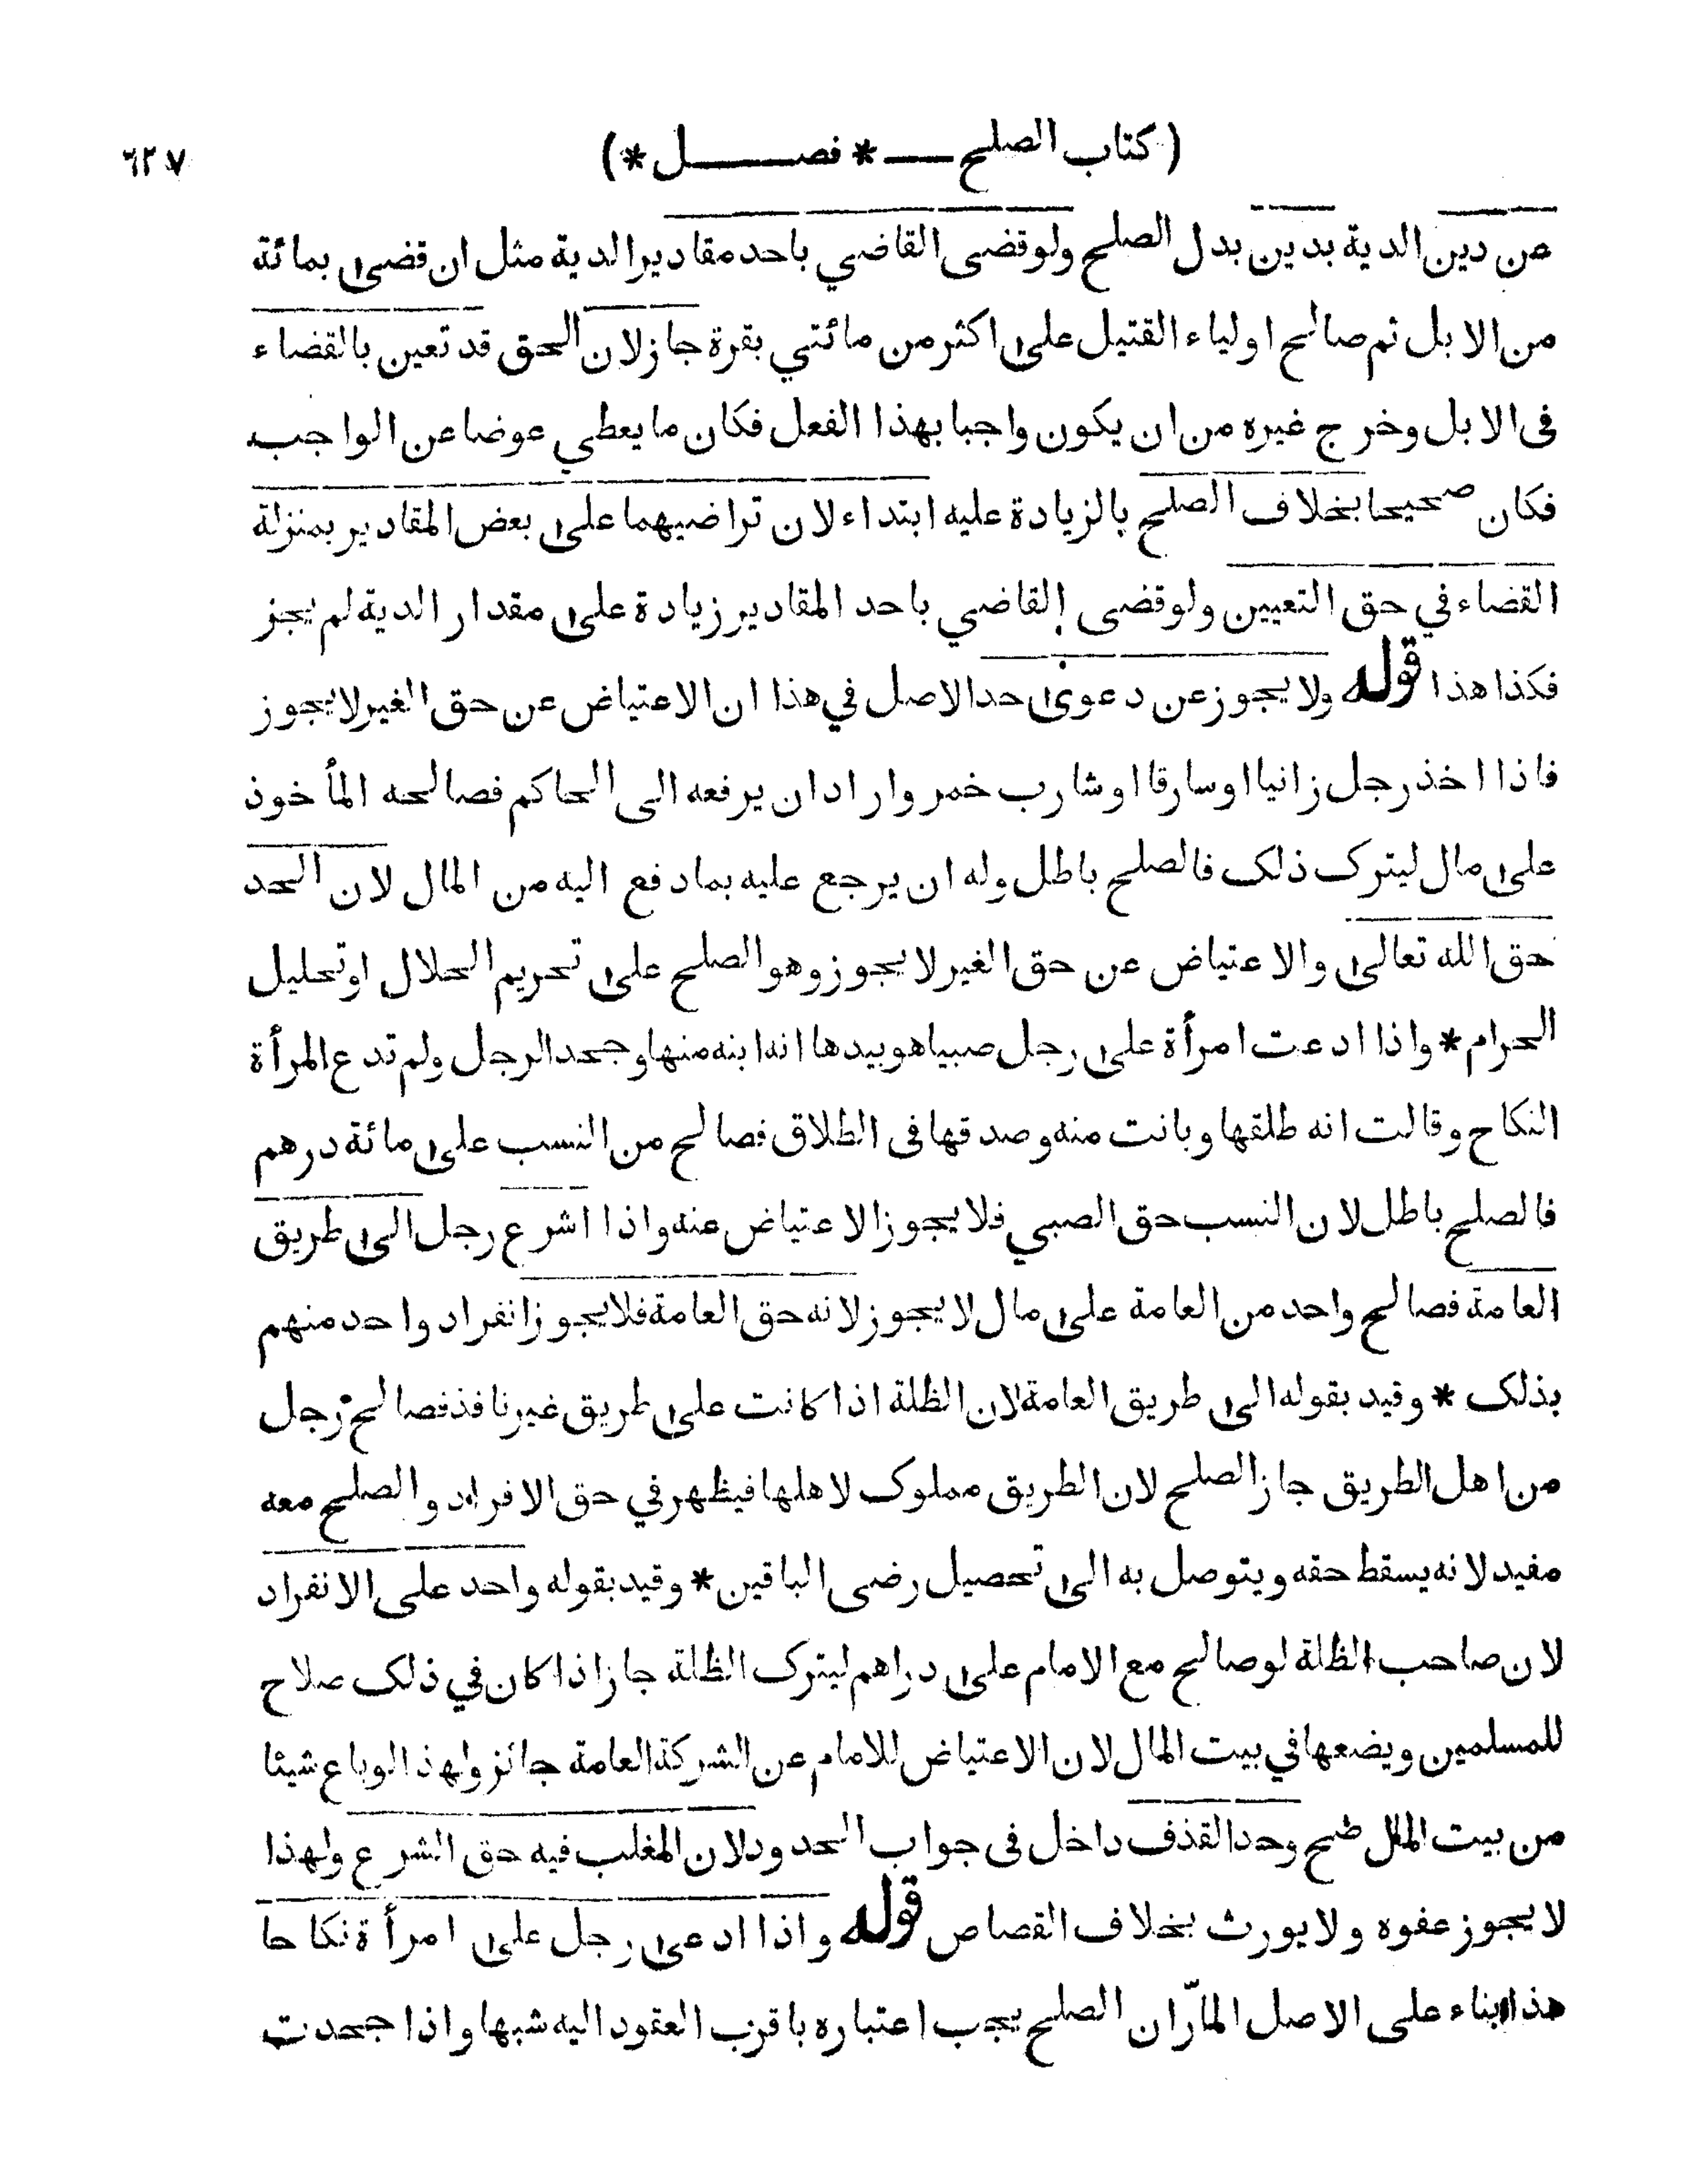 (كتاب الصلح — * فصل *) ٦٢٧
عن دين الدية بدين بدل الصلح ولو قضى القاضي باحد مقادير الدية مثل ان قضى بمائة
من الابل ثم صالح اولياء القتيل على اكثر من مائتي بقرة جاز لان الحق قد تعين بالقضاء
فى الابل وخرج غيره من ان يكون واجبا بهذا الفعل فكان ما يعطي عوضا عن الواجب
فكان صحيحا بخلاف الصلح بالزيادة عليه ابتداء لان تراضيهما على بعض المقادير بمنزلة
القضاء في حق التعيين ولو قضى القاضي باحد المقادير زيادة على مقدار الدية لم يجز
فكذا هذا قوله ولا يجوز عن دعوى حد الاصل في هذا ان الاعتياض عن حق الغير لا يجوز
فاذا اخذ رجل زانيا او سارقا او شارب خمر واراد ان يرفعه الى الحاكم فصالحه المأخوذ
على مال ليترك ذلك فالصلح باطل وله ان يرجع عليه بما دفع اليه من المال لان الحد
حق الله تعالى والاعتياض عن حق الغير لا يجوز وهو الصلح على تحريم الحلال او تحليل
الحرام * واذا ادعت امرأة على رجل صبيا هو بيدها انه ابنه منها وجحد الرجل ولم تدع المرأة
النكاح وقالت انه طلقها وبانت منه وصدقها فى الطلاق فصالح من النسب على مائة درهم
فالصلح باطل لان النسب حق الصبي فلا يجوز الاعتياض عنه واذا اشرع رجل الى طريق
العامة فصالح واحد من العامة على مال لا يجوز لانه حق العامة فلا يجوز انفراد واحد منهم
بذلك * وقيد بقوله الى طريق العامة لان الظلة اذا كانت على طريق غير نافذ فصالح رجل
من اهل الطريق جاز الصلح لان الطريق مملوك لاهلها فيظهر في حق الافراد والصلح معه
مفيد لانه يسقط حقه ويتوصل به الى تحصيل رضى الباقين * وقيد بقوله واحد على الانفراد
لان صاحب الظلة لو صالح مع الامام على دراهم ليترك الظلة جاز اذا كان في ذلك صلاح
للمسلمين ويضعها في بيت المال لان الاعتياض للامام عن الشركة العامة جائز ولهذا لو باع شيئا
من بيت المال صح وحد القذف داخل فى جواب الحدود لان المغلب فيه حق الشرع ولهذا
لا يجوز عفوه ولا يورث بخلاف القصاص قوله واذا ادعى رجل على امرأة نكاحا
هذا بناء على الاصل المارّ ان الصلح يجب اعتباره باقرب العقود اليه شبها واذا جحدت